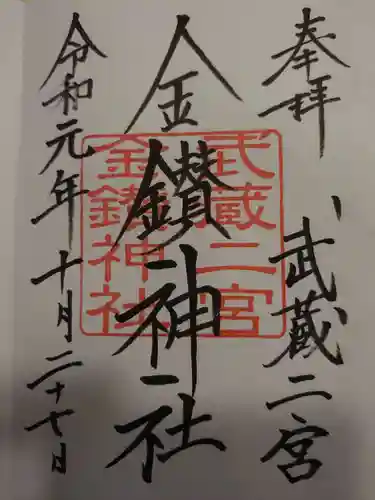 奉拝
武蔵二宮
金鑚神社
令和元年十月二十七日
武蔵二宮
金鑚神社